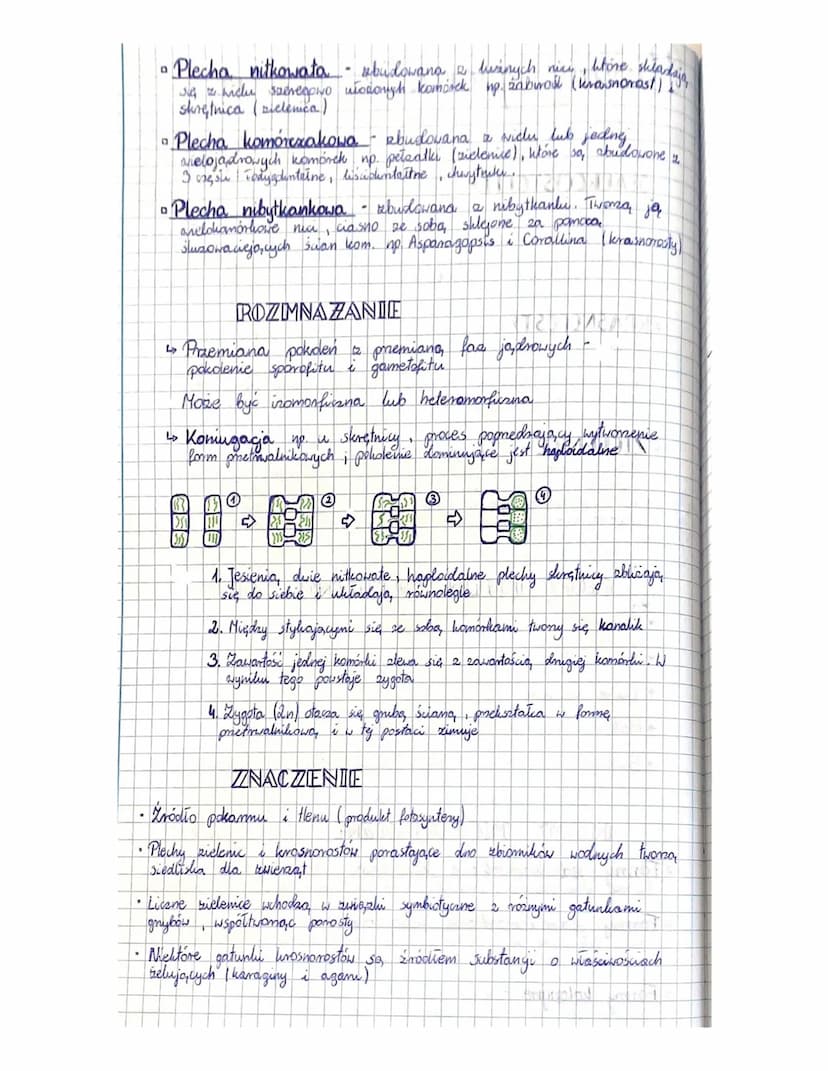 ▫ Plecha nitkowata - zbudowana z luźnych nici, które składają
się z wielu szeregowo ułożonych komórek np. żabirośl (krasnorost) i
skrętnica (zielenica)
▫ Plecha komórczakowa - zbudowana z wielu lub jednej
wielojądrowych komórek np. pełzatki (zielenice), które są zbudowane z
3 części: łodygokształtne, liściokształtne, chwytniki.
▫ Plecha nibytkankowa - zbudowana z nibytkanki. Tworzą ją
wielokomórkowe nici, ciasno ze sobą sklejone za pomocą
śluzowaciejących ścian kom. np. Asparagopsis i Corallina (krasnorosty)
ROZMNAŻANIE
↳ Przemiana pokoleń z przemianą faz jądrowych -
pokolenie sporofitu i gametofitu
Może być izomorficzna lub heteromorficzna
↳ Koniugacja np. u skrętnicy, proces poprzedzający wytworzenie
form przetrwalnikowych; pokolenie dominujące jest haploidalne
① ② ③ ④
1. Jesienią, dwie nitkowate, haploidalne plechy skrętnicy zbliżają
się do siebie i układają równolegle
2. Między stykającymi się ze sobą komórkami tworzy się kanalik
3. Zawartość jednej komórki zlewa się z zawartością drugiej komórki. W
wyniku tego powstaje zygota
4. Zygota (2n) otacza się grubą ścianą, przekształca w formę
przetrwalnikową i w tej postaci zimuje
ZNACZENIE
• Źródło pokarmu i tlenu (produkt fotosyntezy)
• Plechy zielenic i krasnorostów porastające dno zbiorników wodnych tworzą
siedliska dla zwierząt
• Liczne zielenice wchodzą w związki symbiotyczne z różnymi gatunkami
grzybów, współtworząc porosty
• Niektóre gatunki krasnorostów są źródłem substancji o właściwościach
żelujących (karageny i agary)